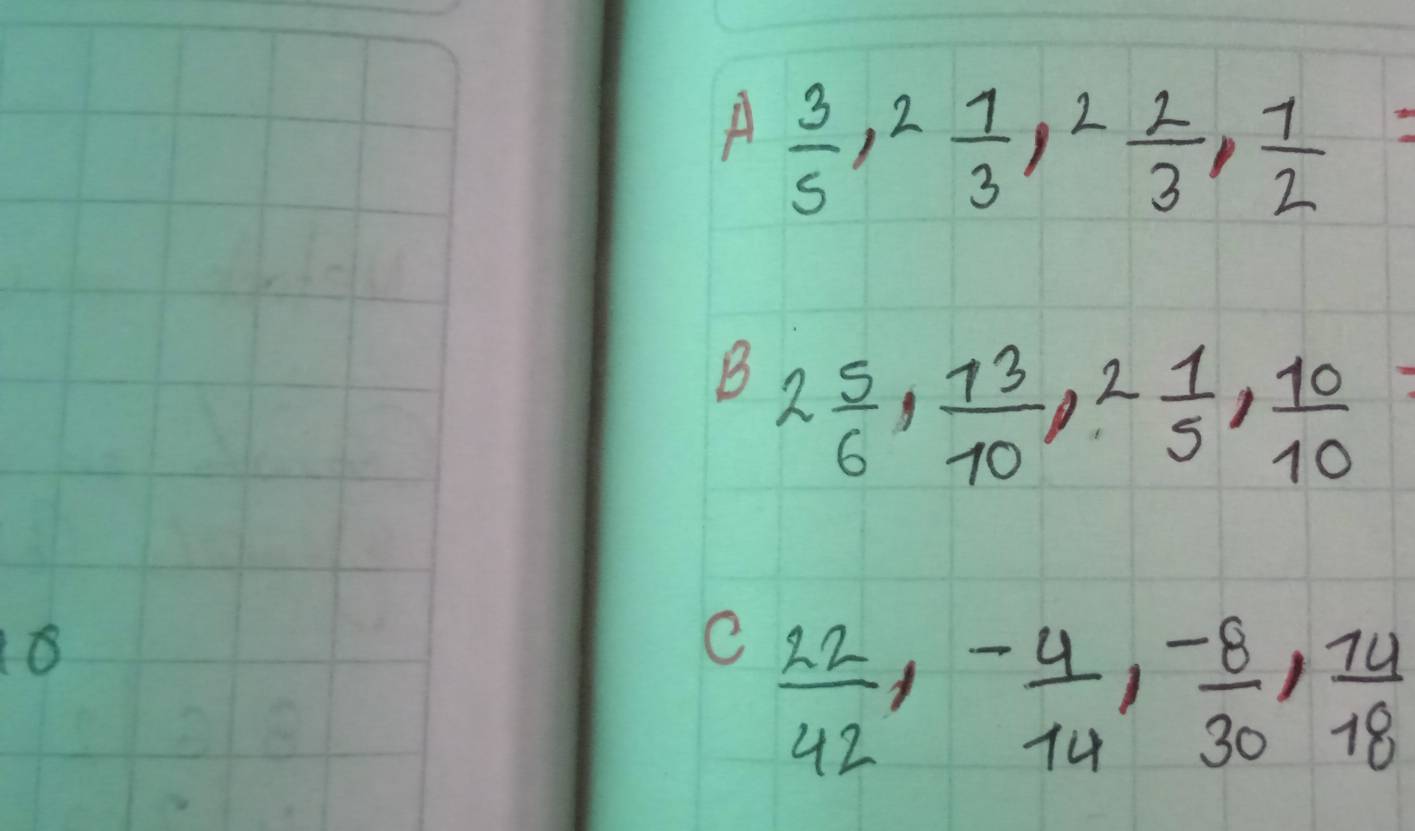 A 3/5, 2 1/3, 2 2/3, 1/2 =
B 2 5/6, 13/10, 2 1/5, 10/10 =
C 22/42, -4/14, -8/30, 14/18